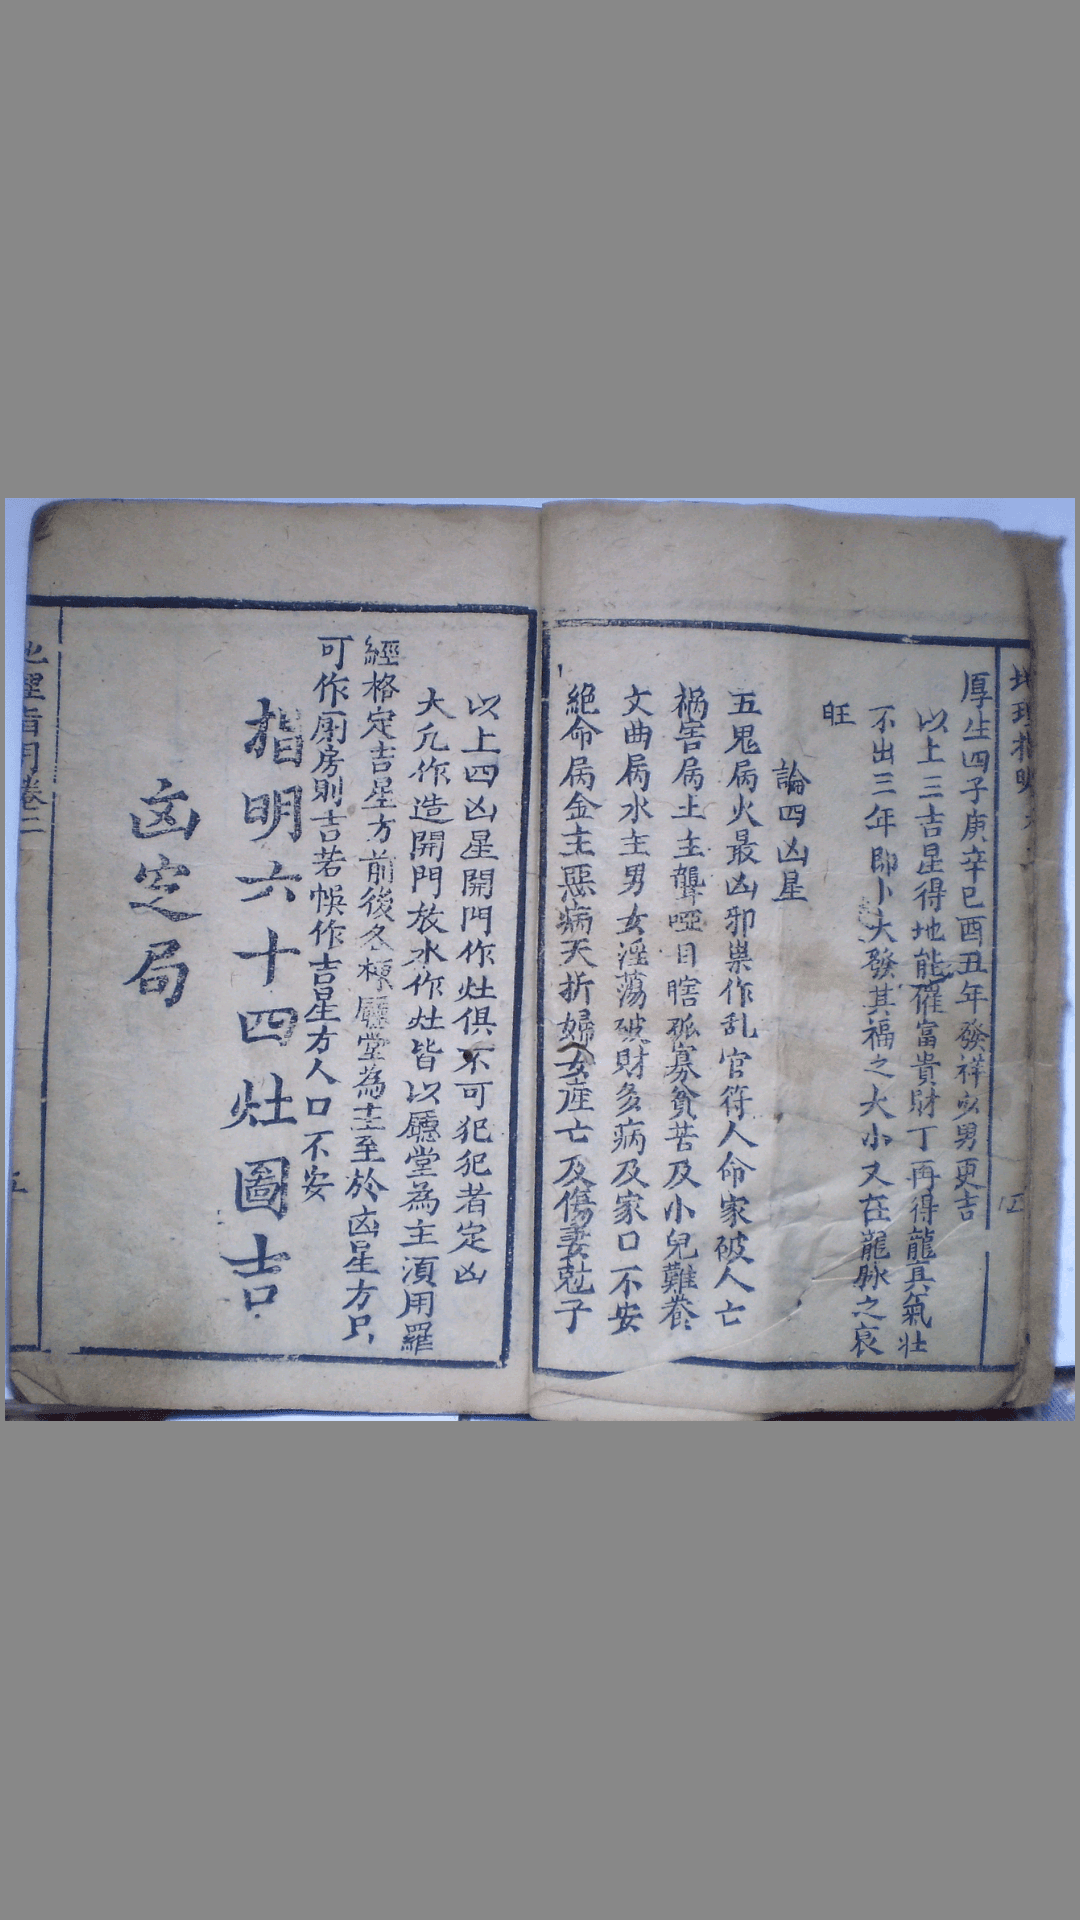 地理指明
厚生四子庚辛巳酉丑年發祥少男更吉
以上三吉星得地能催富貴財丁再得龍真氣壯
不出三年即小大發其福之大小又在龍脉之衰
旺
論四凶星
五鬼属火最凶邪巢作乱官符人命家破人亡
禍害属土主聾啞目瞎孤寡貧苦及小兒難養
文曲属水主男女淫蕩破財多病及家口不安
絕命属金主惡病夭折婦女產亡及傷妻尅子
以上四凶星開門作灶俱不可犯犯者定凶
大凢作造開門放水作灶皆以廳堂為主湏用羅
經格定吉星方前後各棟廳堂為主至於凶星方只
可作廁房則吉若悮作吉星方人口不安
指明六十四灶圖吉
凶定局
地理指明卷二
五